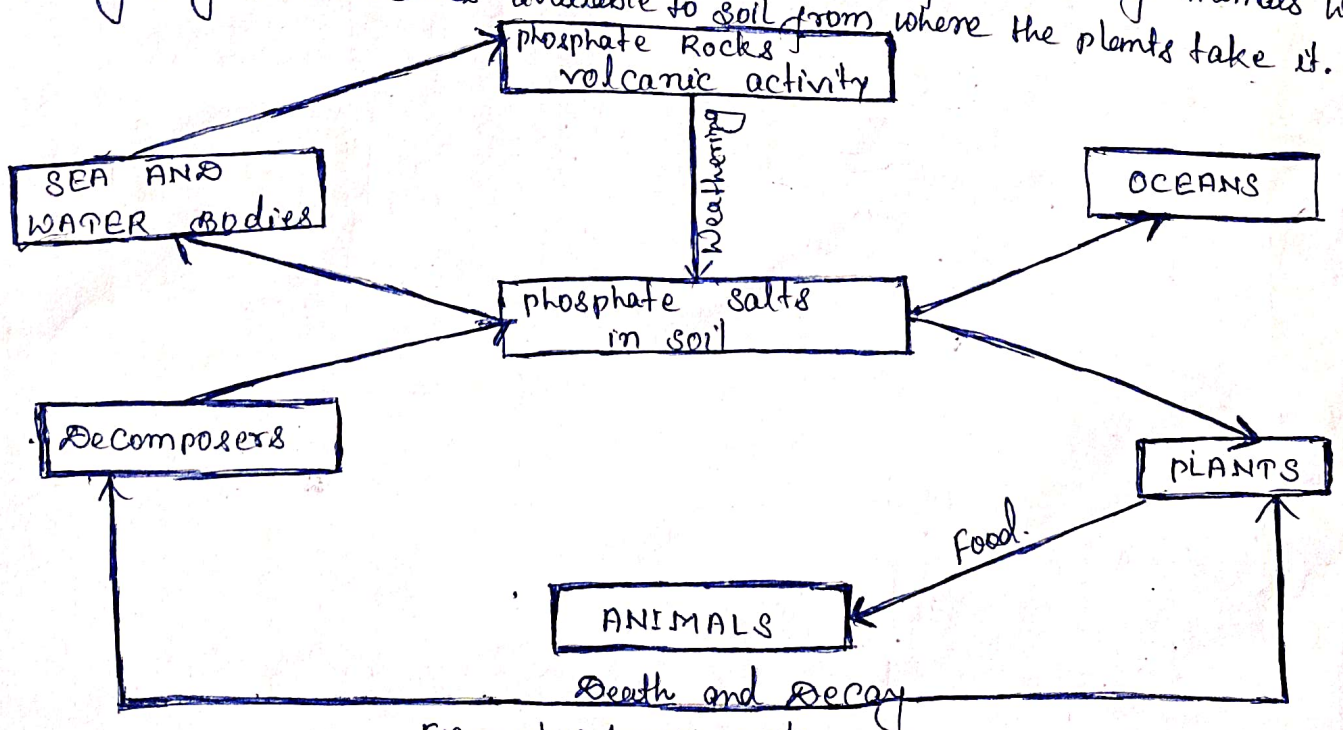 to soil from where the plants take it.
phosphate Rocks
volcanic activity
Weathering
SEA AND
WATER Bodies
OCEANS
phosphate salts
in soil
Decomposers
PLANTS
Food.
ANIMALS
Death and Decay